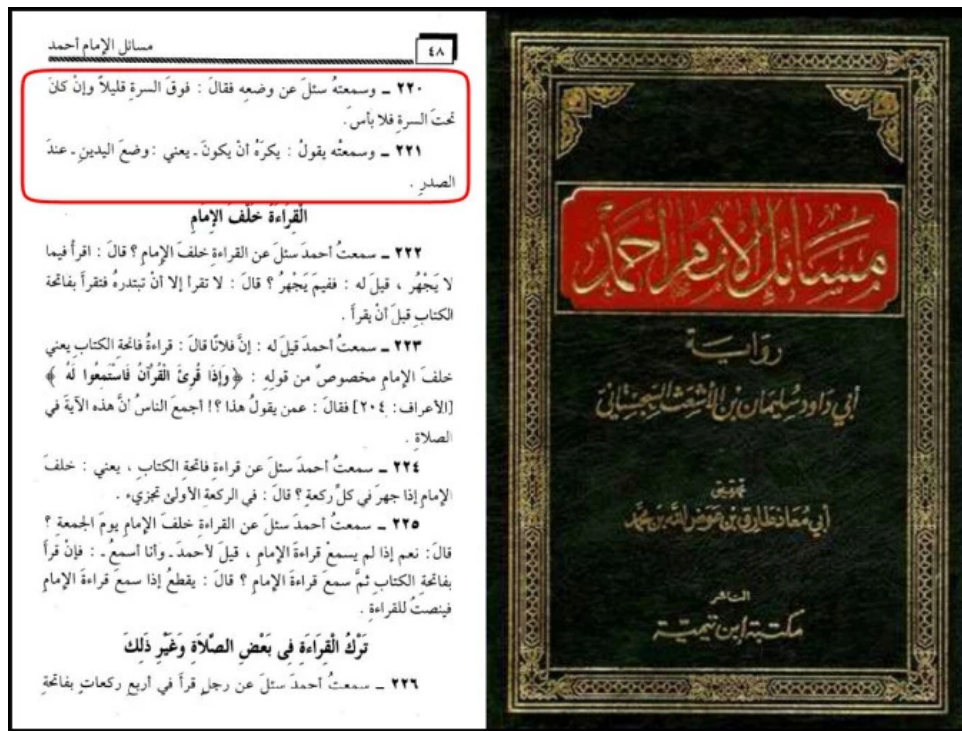 مسائل الإمام أحمد
٤٨
٢٢٠ ـ وسمعتُه سئلَ عن وضعِه فقالَ : فوقَ السرةِ قليلاً وإنْ كانَ
تحتَ السرةِ فلا بأسَ .
٢٢١ ـ وسمعتُه يقولُ : يكرَهُ أنْ يكونَ ـ يعني : وضعَ اليدينِ ـ عندَ
الصدرِ .
الْقِرَاءَةُ خَلْفَ الإِمَامِ
٢٢٢ ـ سمعتُ أحمدَ سئلَ عن القراءةِ خلفَ الإمامِ ؟ قالَ : اقرأْ فيما
لا يَجْهَرُ ، قيلَ له : ففيمَ يَجْهَرُ ؟ قالَ : لا تقرأ إلا أنْ تبتدرهُ فتقرأَ بفاتحة
الكتابِ قبلَ أنْ يقرأَ .
٢٢٣ ـ سمعتُ أحمدَ قيلَ له : إنَّ فلانًا قالَ : قراءةُ فاتحةِ الكتابِ يعني
خلفَ الإمامِ مخصوصٌ من قولِه : ﴿ وَإِذَا قُرِئَ الْقُرْآنُ فَاسْتَمِعُوا لَهُ ﴾
[الأعراف: ٢٠٤] فقالَ : عمن يقولُ هذا ؟! أجمعَ الناسُ أنَّ هذه الآيةَ في
الصلاةِ .
٢٢٤ ـ سمعتُ أحمدَ سئلَ عن قراءةِ فاتحةِ الكتابِ ، يعني : خلفَ
الإمامِ إذا جهرَ في كلِّ ركعةٍ ؟ قالَ : في الركعةِ الأولى تجزيء .
٢٢٥ ـ سمعتُ أحمدَ سئلَ عن القراءةِ خلفَ الإمامِ يومَ الجمعةِ ؟
قالَ : نعم إذا لم يسمعْ قراءةَ الإمامِ ، قيلَ لأحمدَ ـ وأنا أسمعُ ـ : فإنْ قرأَ
بفاتحةِ الكتابِ ثمَّ سمعَ قراءةَ الإمامِ ؟ قالَ : يقطعُ إذا سمعَ قراءةَ الإمامِ
فينصتُ للقراءةِ .
تَرْكُ الْقِرَاءَةِ فِي بَعْضِ الصَّلاَةِ وَغَيْرِ ذَلِكَ
٢٢٦ ـ سمعتُ أحمدَ سئلَ عن رجلٍ قرأَ في أربعِ ركعاتٍ بفاتحةِ
مسائل الإمام أحمد
رواية
أبي داود سليمان بن الأشعث السجستاني
تحقيق
أبي معاذ طارق بن عوض الله بن محمد
الناشر
مكتبة ابن تيمية